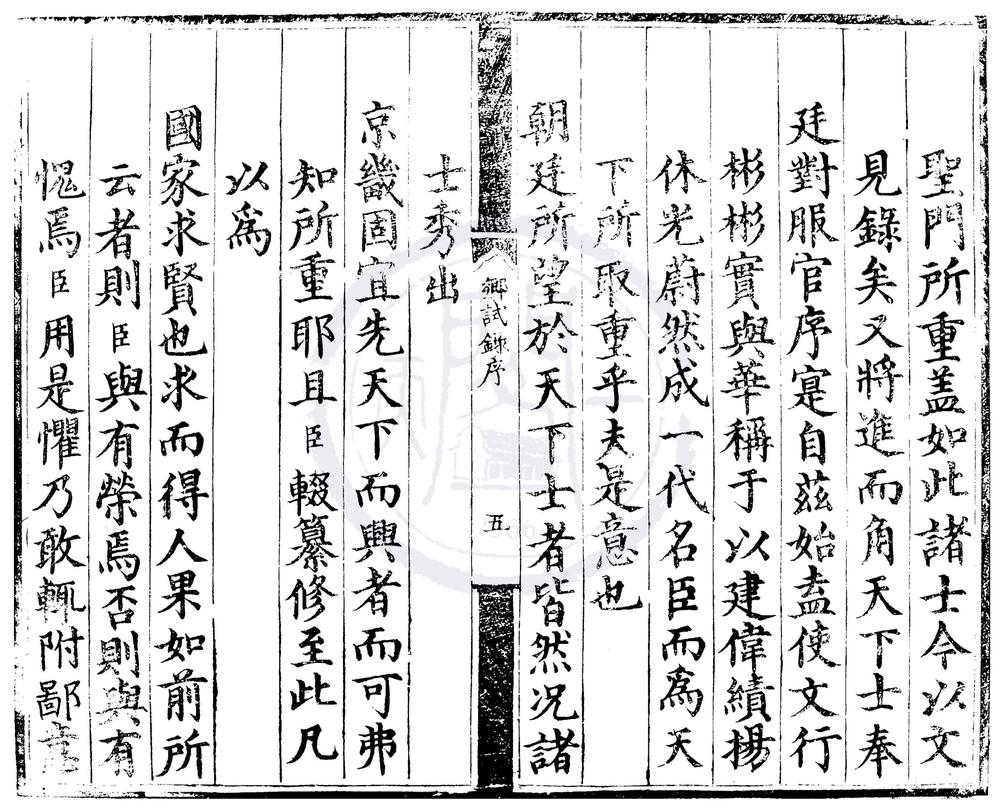 聖門所重盖如此諸士今以文
見錄矣又將進而角天下士奉
廷對服官序寔自茲始盍使文行
彬彬實與華稱于以建偉績揚
休光蔚然成一代名臣而為天
下所取重乎夫是意也
朝廷所望於天下士者皆然况諸
鄉試錄序
五
士秀出
京畿固宜先天下而興者而可弗
知所重耶且臣輟纂修至此凡
以為
國家求賢也求而得人果如前所
云者則臣與有榮焉否則與有
愧焉臣用是懼乃敢輒附鄙意